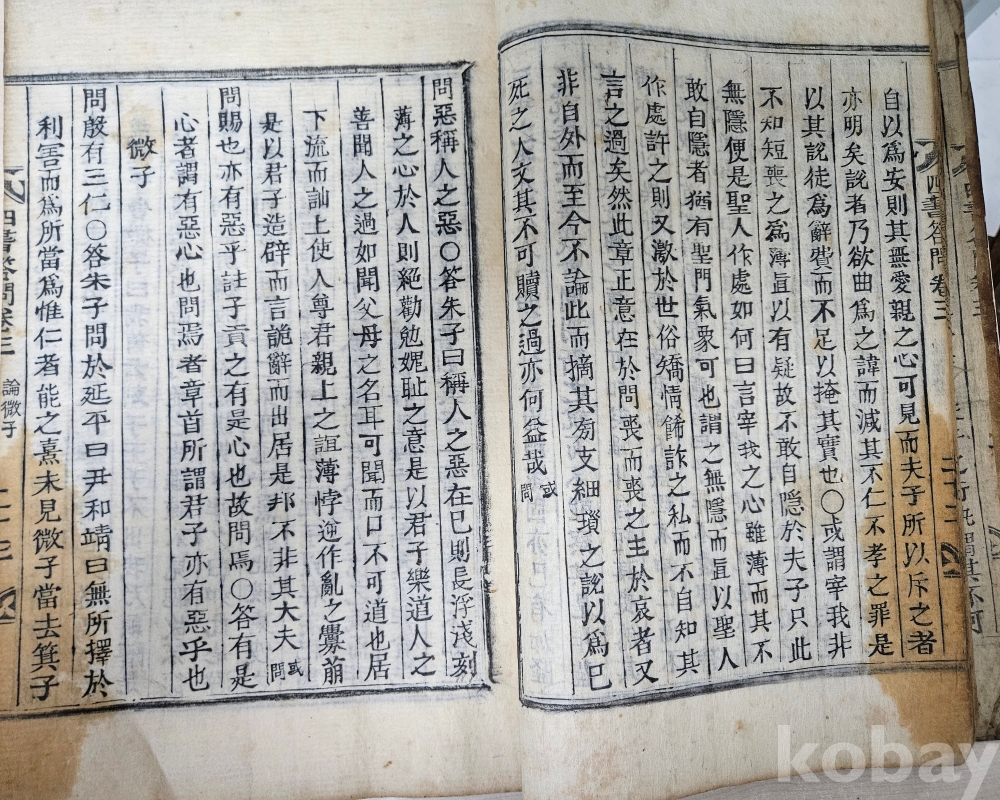 四書答問卷三
自以爲安則其無愛親之心可見而夫子所以斥之者
亦明矣說者乃欲曲爲之諱而減其不仁不孝之罪是
以其說徒爲辭費而不足以掩其實也〇或謂宰我非
不知短喪之爲薄直以有疑故不敢自隱於夫子只此
無隱便是聖人作處如何曰言宰我之心雖薄而其不
敢自隱者猶有聖門氣象可也謂之無隱而直以聖人
作處許之則又激於世俗矯情餙詐之私而不自知其
言之過矣然此章正意在於問喪而喪之主於哀者又
非自外而至今不論此而摘其旁支細瑣之說以爲已
死之人文其不可贖之過亦何益哉 或問
問惡稱人之惡〇答朱子曰稱人之惡在已則長浮淺刻
薄之心於人則絶勸勉媿耻之意是以君子樂道人之
善聞人之過如聞父母之名耳可聞而口不可道也居
下流而訕上使人尊君親上之誼薄悖逆作亂之釁萠
是以君子造辟而言詭辭而出居是邦不非其大夫 或問
問賜也亦有惡乎註子貢之有是心也故問焉〇答有是
心者謂有惡心也問焉者章首所謂君子亦有惡乎也
微子
問殷有三仁〇答朱子問於延平曰尹和靖曰無所擇於
利害而爲所當爲惟仁者能之熹未見微子當去箕子
四書答問卷三 論微子
kobay